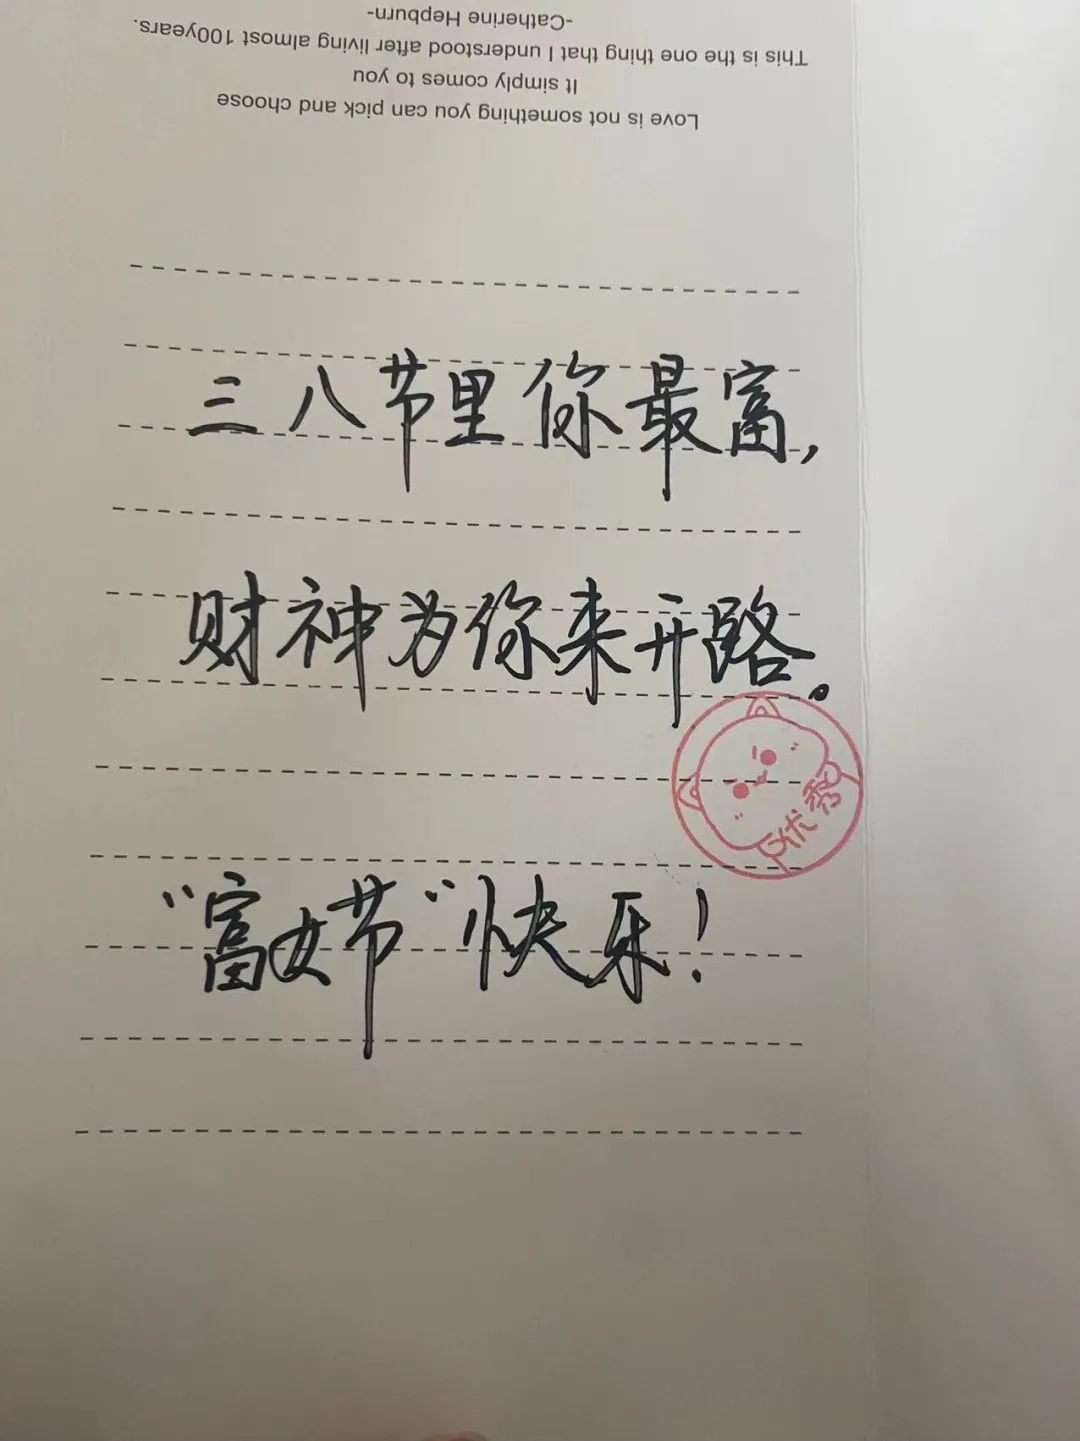 三八节里你最富，
财神为你来开路。
优秀
“富女节“快乐！
Love is not something you can pick and choose
It simply comes to you
This is the one thing that I understood after living almost 100years.
-Catherine Hepburn-